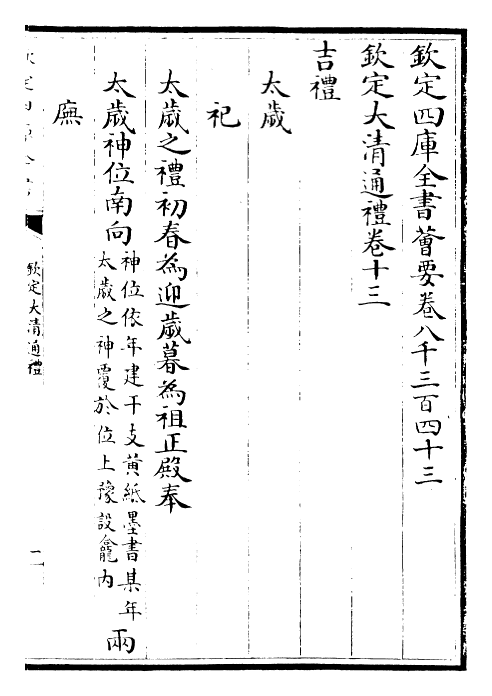 欽定四庫全書薈要卷八千三百四十三
欽定大清通禮卷十三
吉禮
太歲
祀
太歲之禮初春為迎歲暮為祖正殿奉
太歲神位南向神位依年建干支黃紙墨書某年太歲之神覆於位上豫設龕內兩
廡
欽定大清通禮
一